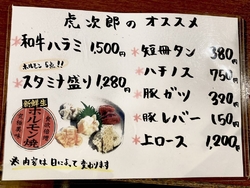 虎次郎のオススメ
*和牛ハラミ 1,500円
ホルモン5点!!
*スタミナ盛り 1,280円
新鮮生
ホルモン焼
*短冊タン 380円
*ハチノス 750円
*豚ガツ 320円
*豚レバー 150円
*上ロース 1,200円
※内容は日によって変わります